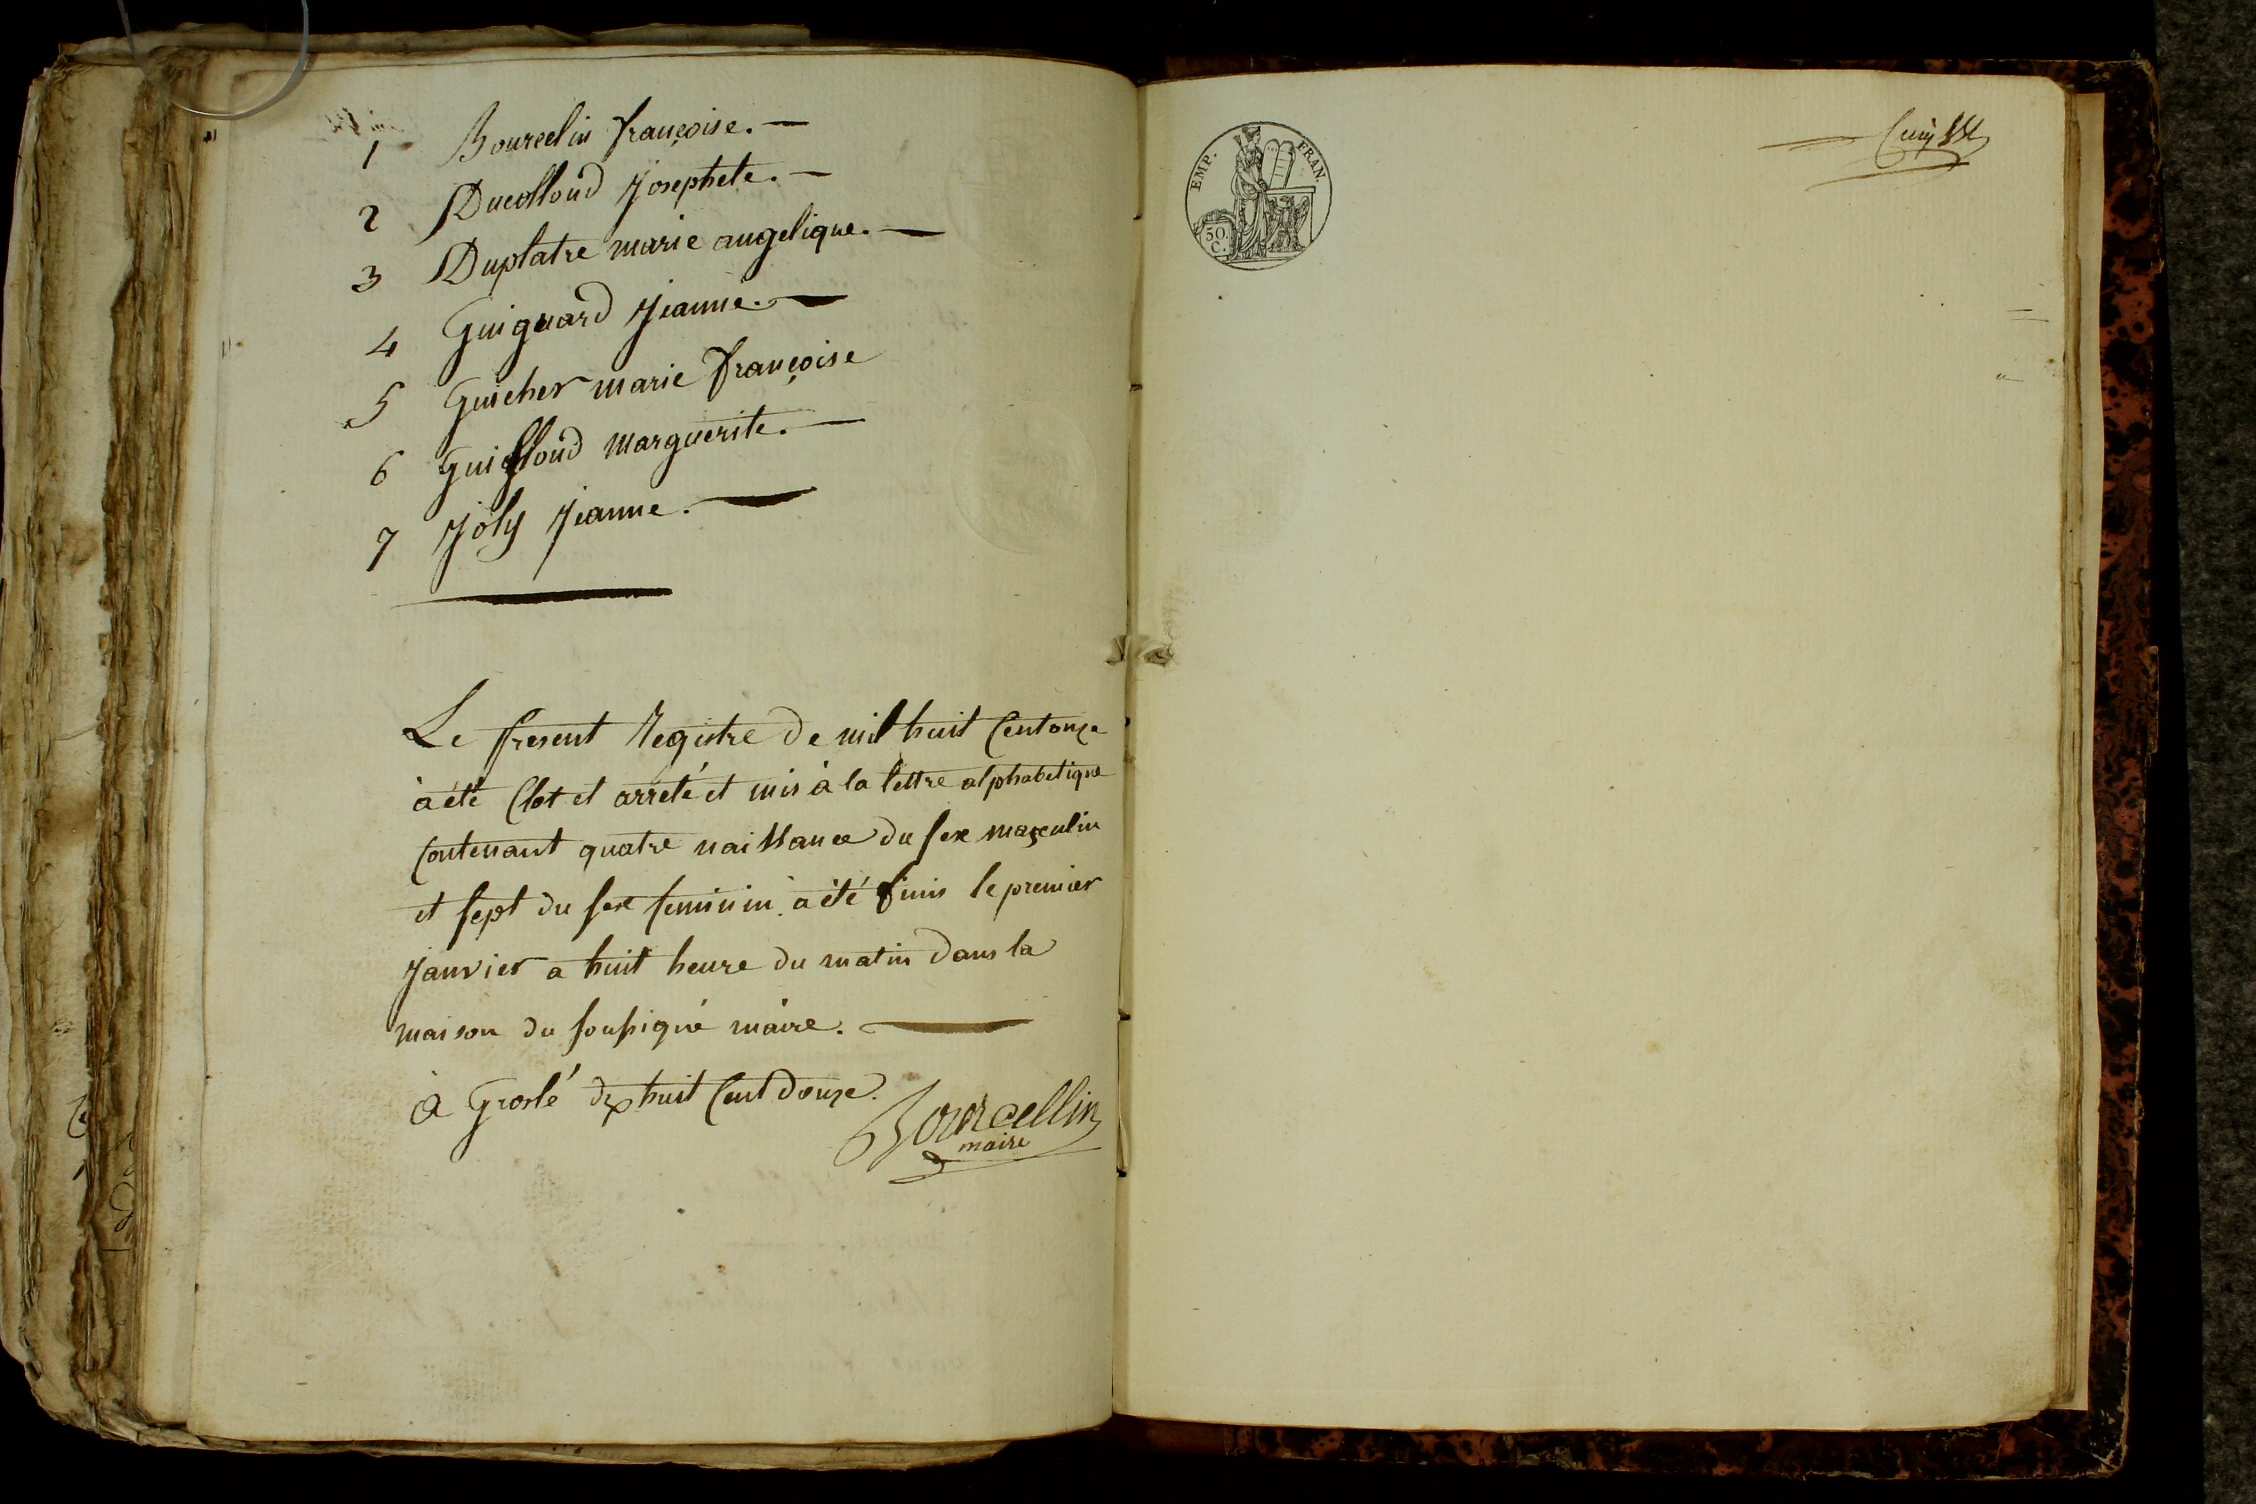 1 Bourcelin françoise. —
2 Ducolloud Josephete. —
3 Duplatre marie angelique. —
4 Guiguard Jeanne. —
5 Guicher marie françoise
6 Guilloud marguerite. —
7 Joly Jeanne. —
Le present Registre de mil huit Centonze
à été Clot et arreté et mis à la lettre alphabetique
Contenant quatre naissance du sexe masculin
et sept du sexe feminin à été finis le premier
Janvier a huit heure du matin dans la
maison du soussigné maire. —
à Groslé dix huit Cent douze.
Bourcellin
maire
EMP. FRAN.
50.
C.